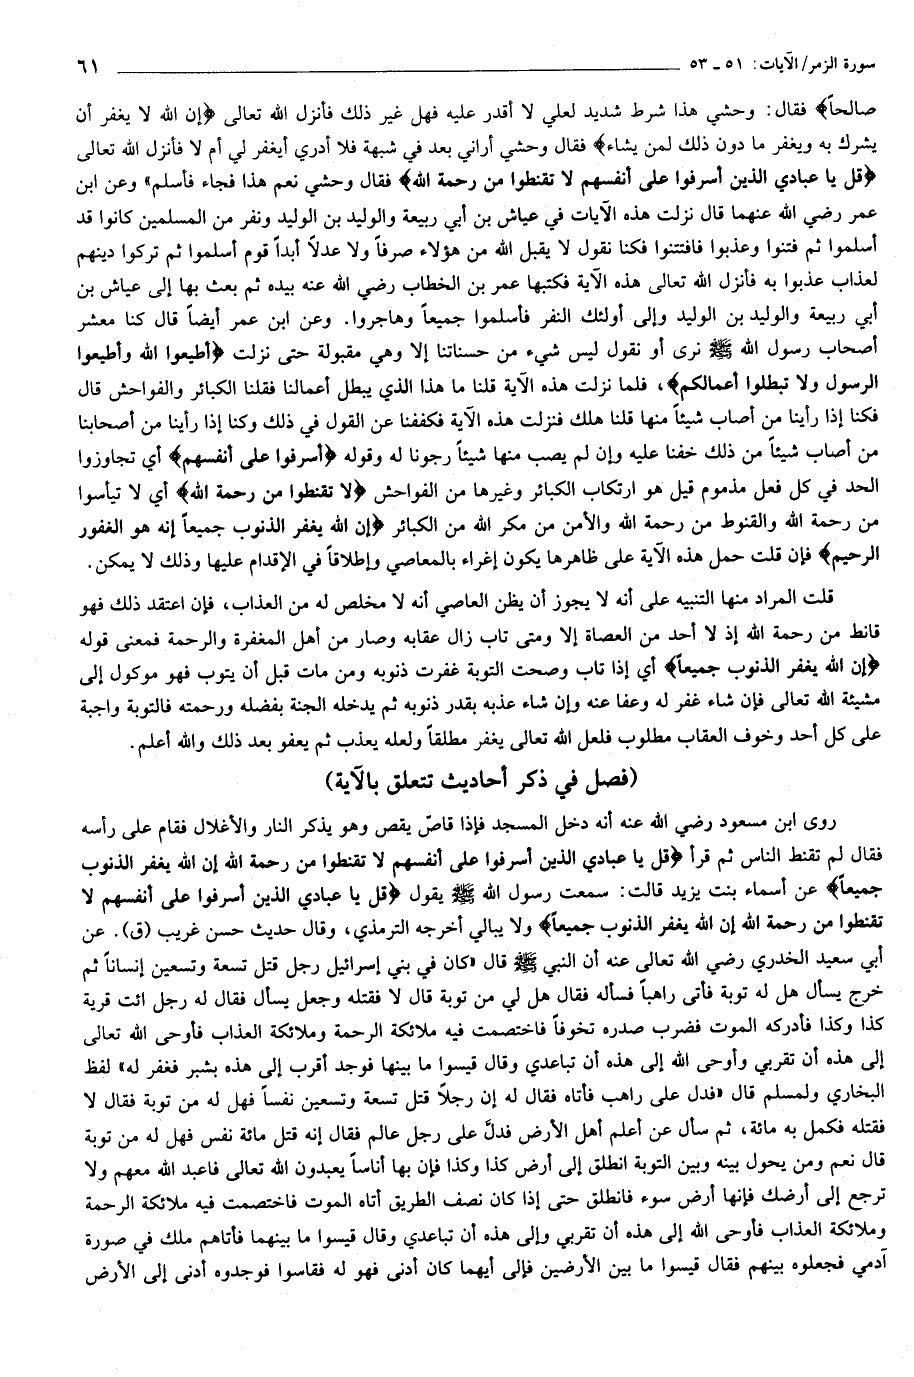 سورة الزمر/ الآيات: ٥١ ـ ٥٣ ٦١
صالحاً﴾ فقال: وحشي هذا شرط شديد لعلي لا أقدر عليه فهل غير ذلك فأنزل الله تعالى ﴿إن الله لا يغفر أن
يشرك به ويغفر ما دون ذلك لمن يشاء﴾ فقال وحشي أراني بعد في شبهة فلا أدري أيغفر لي أم لا فأنزل الله تعالى
﴿قل يا عبادي الذين أسرفوا على أنفسهم لا تقنطوا من رحمة الله﴾ فقال وحشي نعم هذا فجاء فأسلم» وعن ابن
عمر رضي الله عنهما قال نزلت هذه الآيات في عياش بن أبي ربيعة والوليد بن الوليد ونفر من المسلمين كانوا قد
أسلموا ثم فتنوا وعذبوا فافتتنوا فكنا نقول لا يقبل الله من هؤلاء صرفاً ولا عدلاً أبداً قوم أسلموا ثم تركوا دينهم
لعذاب عذبوا به فأنزل الله تعالى هذه الآية فكتبها عمر بن الخطاب رضي الله عنه بيده ثم بعث بها إلى عياش بن
أبي ربيعة والوليد بن الوليد وإلى أولئك النفر فأسلموا جميعاً وهاجروا. وعن ابن عمر أيضاً قال كنا معشر
أصحاب رسول الله ﷺ نرى أو نقول ليس شيء من حسناتنا إلا وهي مقبولة حتى نزلت ﴿أطيعوا الله وأطيعوا
الرسول ولا تبطلوا أعمالكم﴾، فلما نزلت هذه الآية قلنا ما هذا الذي يبطل أعمالنا فقلنا الكبائر والفواحش قال
فكنا إذا رأينا من أصاب شيئاً منها قلنا هلك فنزلت هذه الآية فكففنا عن القول في ذلك وكنا إذا رأينا من أصحابنا
من أصاب شيئاً من ذلك خفنا عليه وإن لم يصب منها شيئاً رجونا له وقوله ﴿أسرفوا على أنفسهم﴾ أي تجاوزوا
الحد في كل فعل مذموم قيل هو ارتكاب الكبائر وغيرها من الفواحش ﴿لا تقنطوا من رحمة الله﴾ أي لا تيأسوا
من رحمة الله والقنوط من رحمة الله والأمن من مكر الله من الكبائر ﴿إن الله يغفر الذنوب جميعاً إنه هو الغفور
الرحيم﴾ فإن قلت حمل هذه الآية على ظاهرها يكون إغراء بالمعاصي وإطلاقاً في الإقدام عليها وذلك لا يمكن.
قلت المراد منها التنبيه على أنه لا يجوز أن يظن العاصي أنه لا مخلص له من العذاب، فإن اعتقد ذلك فهو
قانط من رحمة الله إذ لا أحد من العصاة إلا ومتى تاب زال عقابه وصار من أهل المغفرة والرحمة فمعنى قوله
﴿إن الله يغفر الذنوب جميعاً﴾ أي إذا تاب وصحت التوبة غفرت ذنوبه ومن مات قبل أن يتوب فهو موكول إلى
مشيئة الله تعالى فإن شاء غفر له وعفا عنه وإن شاء عذبه بقدر ذنوبه ثم يدخله الجنة بفضله ورحمته فالتوبة واجبة
على كل أحد وخوف العقاب مطلوب فلعل الله تعالى يغفر مطلقاً ولعله يعذب ثم يعفو بعد ذلك والله أعلم.
(فصل في ذكر أحاديث تتعلق بالآية)
روى ابن مسعود رضي الله عنه أنه دخل المسجد فإذا قاصّ يقص وهو يذكر النار والأغلال فقام على رأسه
فقال لم تقنط الناس ثم قرأ ﴿قل يا عبادي الذين أسرفوا على أنفسهم لا تقنطوا من رحمة الله إن الله يغفر الذنوب
جميعاً﴾ عن أسماء بنت يزيد قالت: سمعت رسول الله ﷺ يقول ﴿قل يا عبادي الذين أسرفوا على أنفسهم لا
تقنطوا من رحمة الله إن الله يغفر الذنوب جميعاً﴾ ولا يبالي أخرجه الترمذي، وقال حديث حسن غريب (ق). عن
أبي سعيد الخدري رضي الله تعالى عنه أن النبي ﷺ قال «كان في بني إسرائيل رجل قتل تسعة وتسعين إنساناً ثم
خرج يسأل هل له توبة فأتى راهباً فسأله فقال هل لي من توبة قال لا فقتله وجعل يسأل فقال له رجل ائت قرية
كذا وكذا فأدركه الموت فضرب صدره تخوفاً فاختصمت فيه ملائكة الرحمة وملائكة العذاب فأوحى الله تعالى
إلى هذه أن تقربي وأوحى الله إلى هذه أن تباعدي وقال قيسوا ما بينها فوجد أقرب إلى هذه بشبر فغفر له» لفظ
البخاري ولمسلم قال «فدل على راهب فأتاه فقال له إن رجلاً قتل تسعة وتسعين نفساً فهل له من توبة فقال لا
فقتله فكمل به مائة، ثم سأل عن أعلم أهل الأرض فدلَّ على رجل عالم فقال إنه قتل مائة نفس فهل له من توبة
قال نعم ومن يحول بينه وبين التوبة انطلق إلى أرض كذا وكذا فإن بها أناساً يعبدون الله تعالى فاعبد الله معهم ولا
ترجع إلى أرضك فإنها أرض سوء فانطلق حتى إذا كان نصف الطريق أتاه الموت فاختصمت فيه ملائكة الرحمة
وملائكة العذاب فأوحى الله إلى هذه أن تقربي وإلى هذه أن تباعدي وقال قيسوا ما بينهما فأتاهم ملك في صورة
آدمي فجعلوه بينهم فقال قيسوا ما بين الأرضين فإلى أيهما كان أدنى فهو له فقاسوا فوجدوه أدنى إلى الأرض